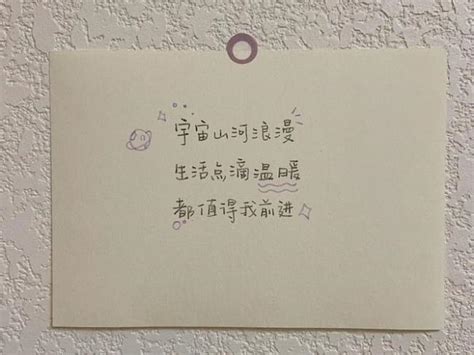 宇宙山河浪漫
生活点滴温暖
都值得我前进